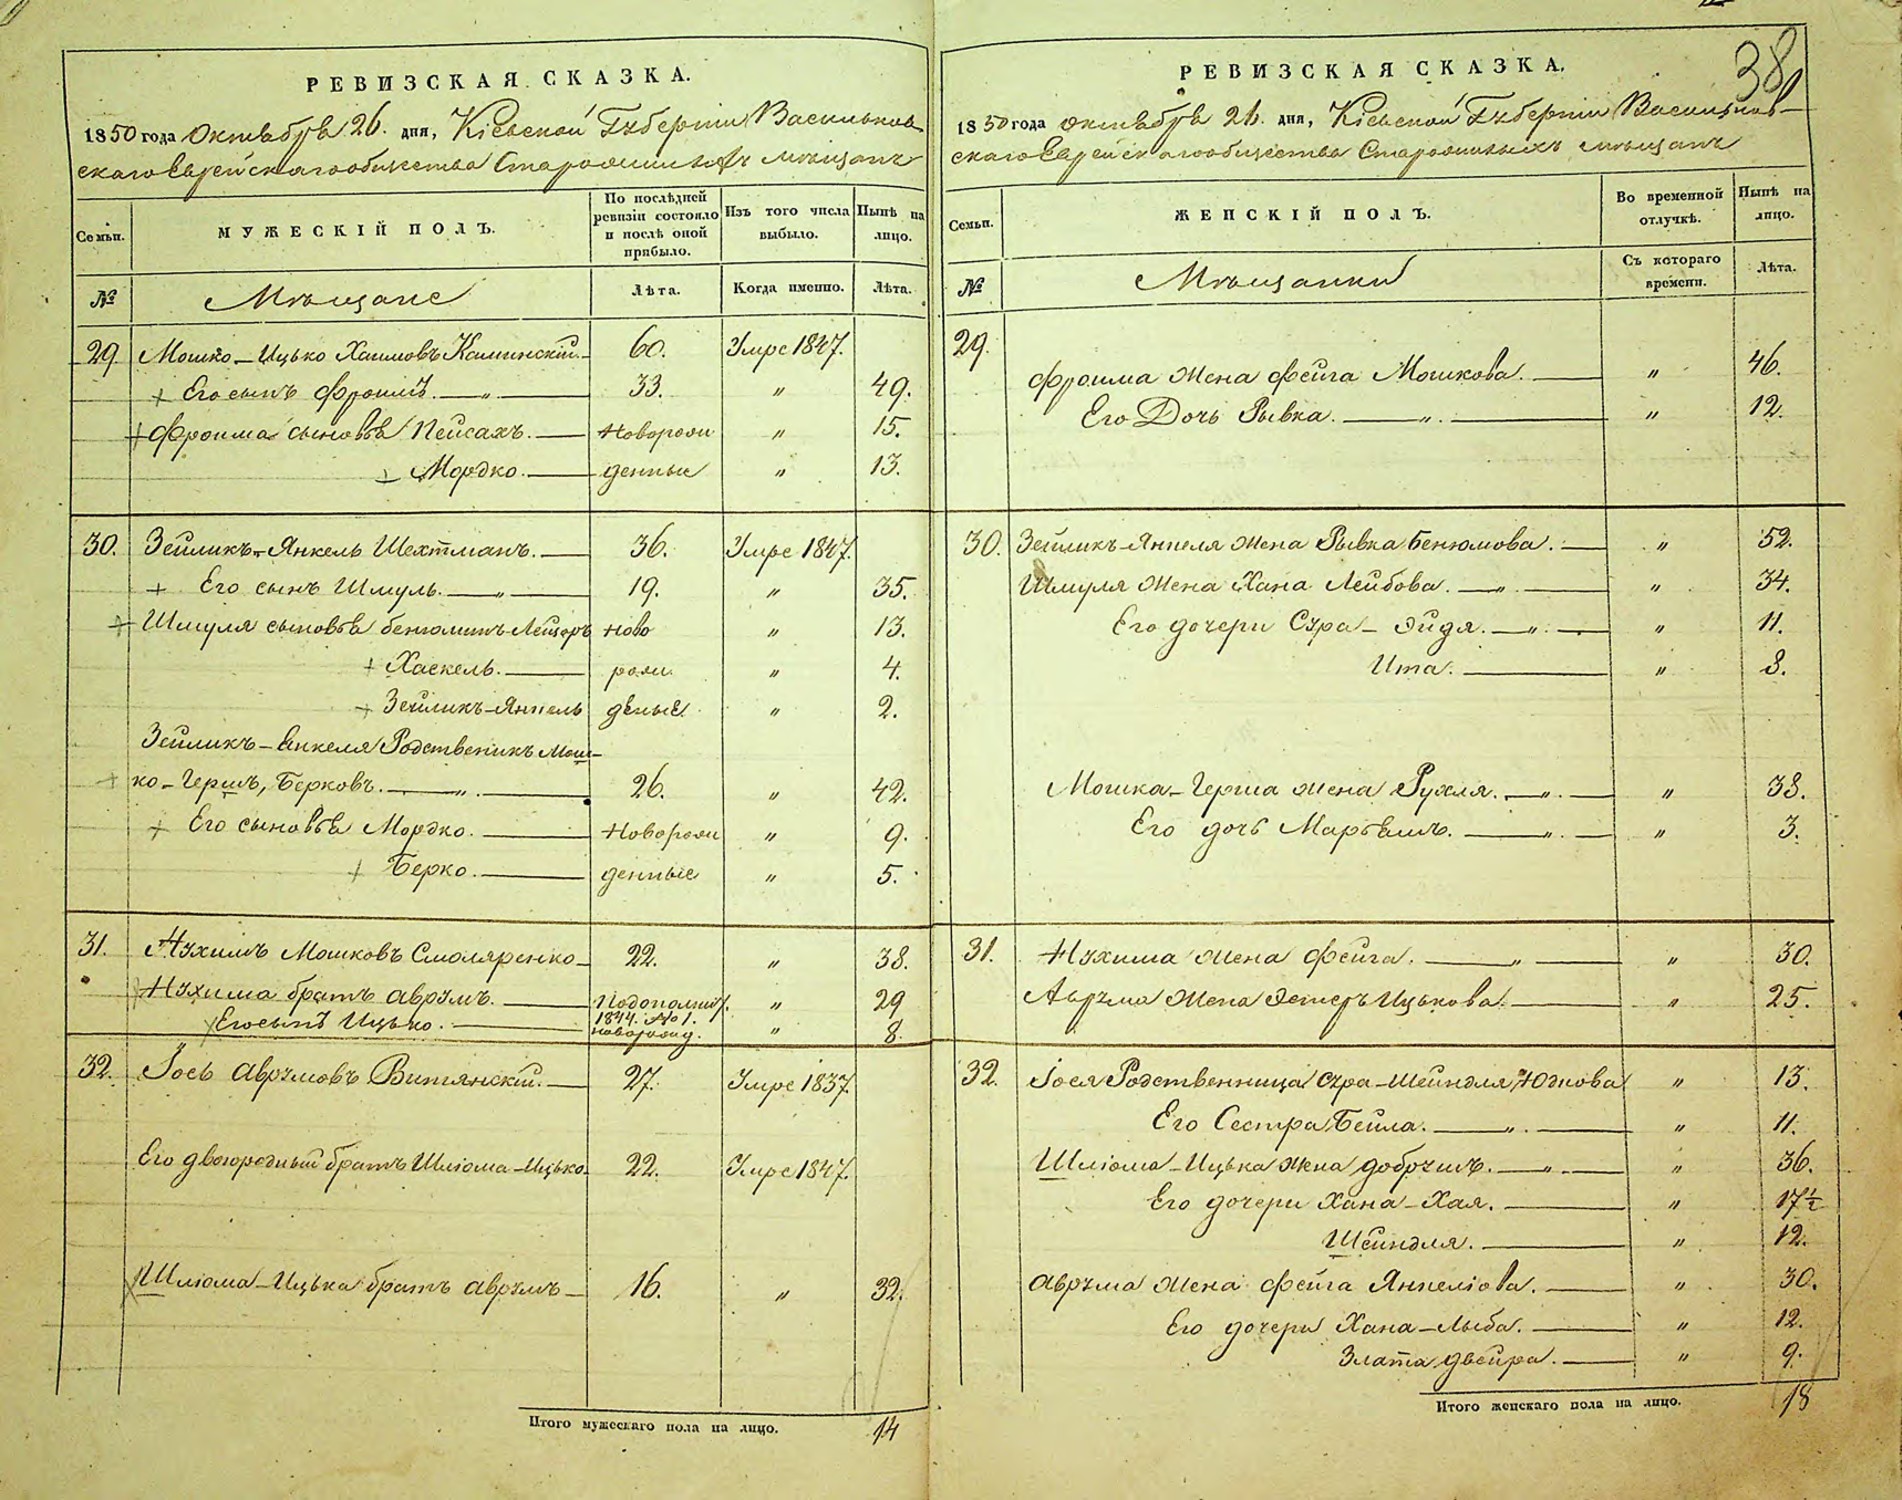 РЕВИЗСКАЯ СКАЗКА.
1850 года Октября 26. дня, Кіевской Губерніи Васильков-
скаго Еврейскаго общества Старожилыхъ мѣщанъ
Семьи.
МУЖЕСКІЙ ПОЛЪ.
По послѣдней ревизіи состояло и послѣ оной прибыло.
Изъ того числа выбыло.
Нынѣ на лицо.
№
Мѣщане
Лѣта.
Когда именно.
Лѣта.
29 Мошко-Ицько Хаимовъ Каминскій. 60. Умре 1847.
+ Его сынъ Фроимъ. — „ — 33. „ 49.
+ Фроима сыновья Пейсахъ. — Новорож „ 15.
+ Мордко. — денные „ 13.
30. Зейликъ-Янкель Шехтманъ. — 36. Умре 1847.
+ Его сынъ Шмуль. — „ — 19. „ 35.
+ Шмуля сыновья Бенюминъ-Лейзеръ ново „ 13.
+ Хаскель. — рож „ 4.
+ Зейликъ-Янкель деные. „ 2.
Зейликъ-Янкеля Родственикъ Мош-
+ ко-Гершъ, Берковъ. — „ — 26. „ 42.
+ Его сыновья Мордко. — Новорож „ 9.
+ Берко. — денные „ 5.
31. Нухимъ Мошковъ Смоляренко — 22. „ 38.
Нухима братъ Аврумъ. — По дополнит. 1844. №1. „ 29
Его сынъ Ицько. — новорожд. „ 8.
32. Іось Аврумовъ Витянскій. — 27. Умре 1837.
Его двоюродный братъ Шліома-Ицько. 22. Умре 1847.
Шліома-Ицька братъ Аврумъ — 16. „ 32.
Итого мужескаго пола на лицо. 14
38
РЕВИЗСКАЯ СКАЗКА.
1850 года Октября 26. дня, Кіевской Губерніи Васильков-
скаго Еврейскаго общества Старожилыхъ мѣщанъ
Семьи.
ЖЕНСКІЙ ПОЛЪ.
Во временной отлучкѣ.
Нынѣ на лицо.
№
Мѣщанки
Съ котораго времени.
Лѣта.
29.
Фроима жена Фейга Мошкова. — „ 46.
Его Дочь Рывка. — „ — „ 12.
30. Зейликъ-Янкеля жена Рывка Бенюмова. — „ 52.
Шмуля жена Хана Лейбова. — „ — „ 34.
Его дочери Сура-Эйдя. — „ — „ 11.
Ита. — „ 8.
Мошка-Герша жена Рухля. — „ — „ 38.
Его дочь Марьямъ. — „ — „ 3.
31. Нухима жена Фейга. — „ — „ 30.
Аврума жена Эстеръ Ицькова. — „ 25.
32. Іося Родственница Сура-Шейндля Юдкова „ 13.
Его Сестра Бейла. — „ — „ 11.
Шліома-Ицька жена Добрумъ. — „ — „ 36.
Его дочери Хана-Хая. — „ 17½
Шейндля. — „ 12.
Аврума жена Фейга Янкеліова. — „ 30.
Его дочери Хана-Лыба. — „ 12.
Злата Двейра. — „ 9.
Итого женскаго пола на лицо. 18